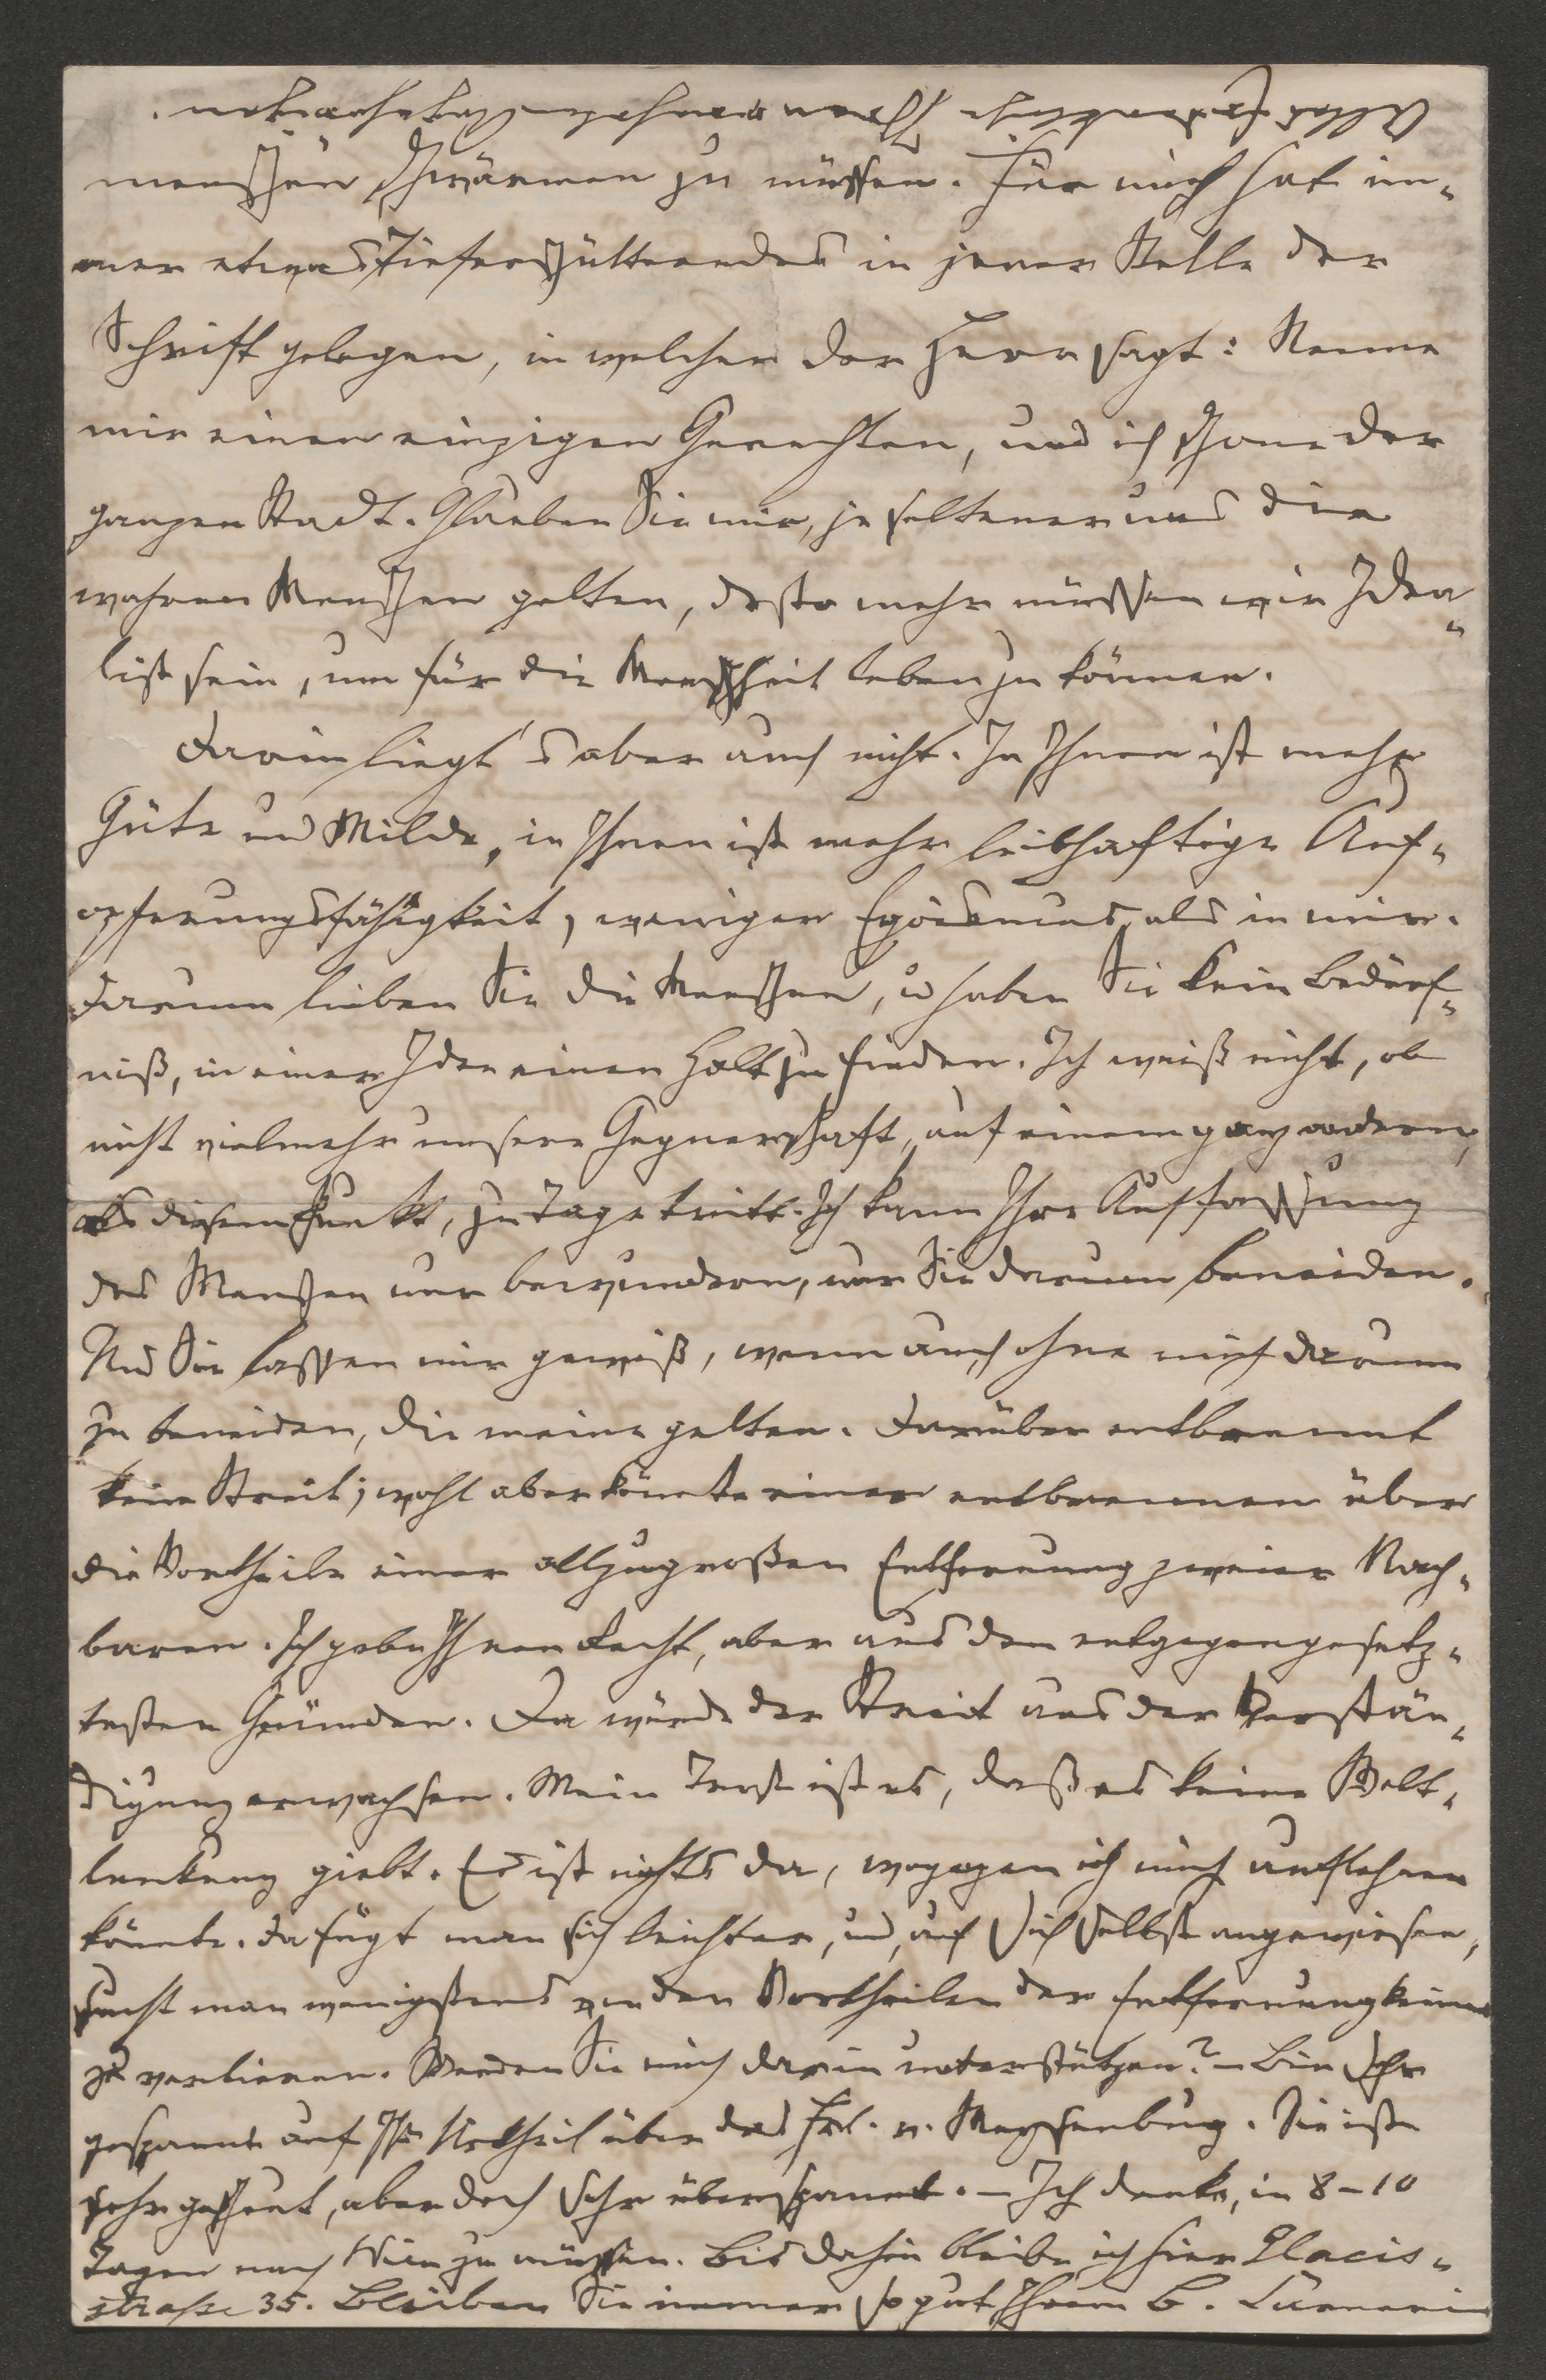 Alles Herzliche Ihren verehrten Angehörigen.
menschen schwärmen zu müssen. Für mich hat im-
mer etwas Tieferschütterndes in jener Stelle der
Schrift gelegen, in welcher der Herr sagt: Nenne
mir einen einzigen Gerechten, und ich schone der
ganzen Stadt. Glauben Sie mir, je seltener uns die
wahren Menschen gelten, desto mehr müssen wir Idea-
list sein, um für die Menschheit leben zu können.
Darin liegt's aber auch nicht. In Ihnen ist mehr
Güte und Milde, in Ihnen ist mehr leibhaftige Auf-
opferungsfähigkeit, weniger Egoismus, als in mir.
Darum lieben Sie die Menschen, u haben Sie kein Bedürf-
niß, in einer Idee einen Halt zu finden. Ich weiß nicht, ob
nicht vielmehr unsere Gegnerschaft, auf einem ganz andern,
als diesem Punkt, zu Tage tritt. Ich kann Ihre Auffassung
des Menschen nur bewundern, nur Sie darum beneiden.
Und Sie lassen mir gewiß, wenn auch ohne mich darum
zu beneiden, die meine gelten. Darüber entbrennt
kein Streit; wohl aber könnte einer entbrennen über
die Vortheile einer allzugroßen Entfernung zweier Nach-
baren. Ich gebe Ihnen Recht, aber aus den entgegengesetz-
testen Gründen. Da würde der Streit aus der Verstän-
digung erwachsen. Mein Trost ist es, daß es keine Welt-
lenkung giebt. Es ist nichts da, wogegen ich mich auflehnen
könnte. Da fügt man sich leichter, und, auf sich selbst angewiesen,
sucht man wenigstens von den Vortheilen der Entfernung keinen
zu verlieren. Werden Sie mich darin unterstützen? – Bin sehr
gespannt auf Ihr Urtheil über das Frl. v. Meysenbug. Sie ist
sehr gescheut, aber doch sehr überspannt. – Ich denke, in 8–10
Tagen nach Wien zu müssen. Bis dahin bleibe ich hier Glacis-
strasse 35. Bleiben Sie immer so gut Ihrem B. Carneri